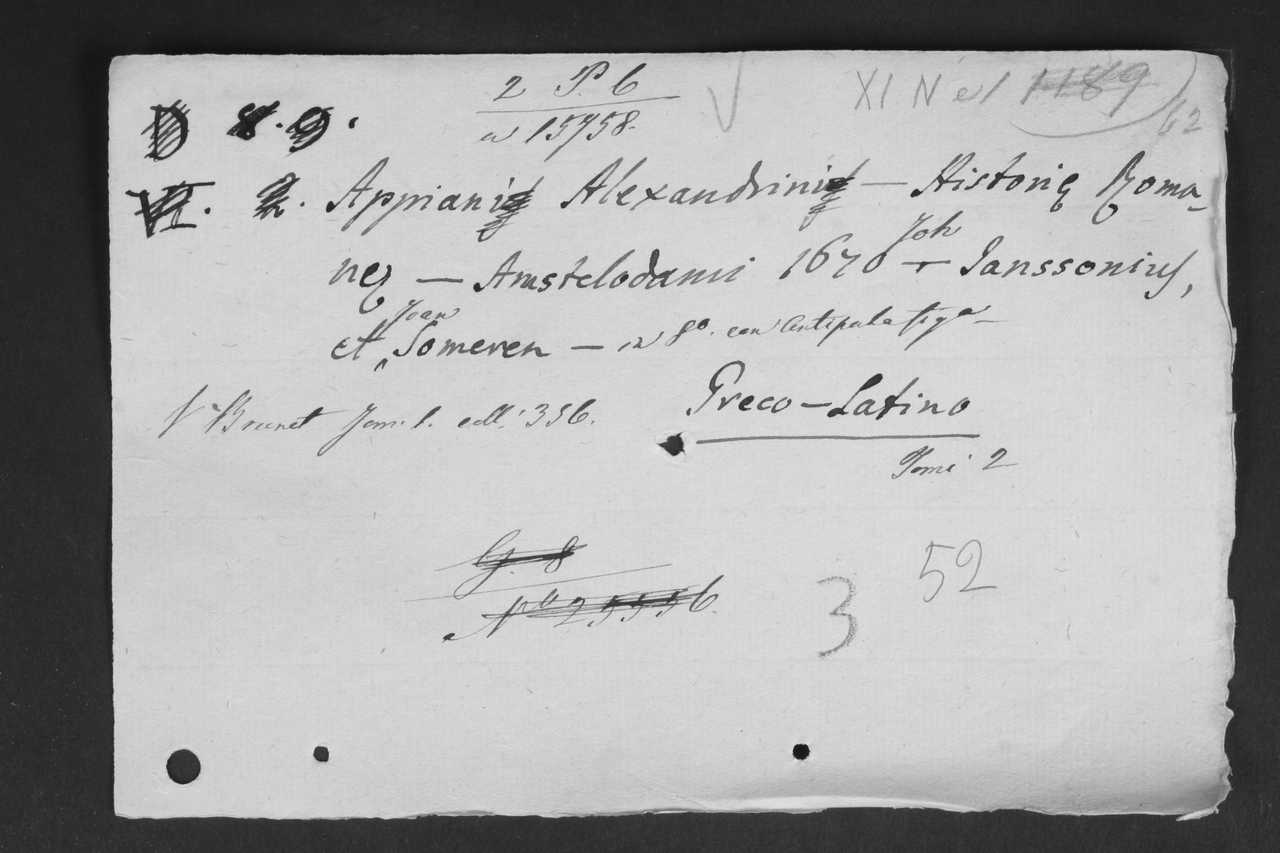 2 P. 6
XI N e 1
62
D 8. 9.
a 15958.
VI. 2. Appiani Alexandrini — Historię Roma-
nę — Amstelodami 1670 — Joh Janssonius,
et Joan Someren — in 8º. con Antiporta fig.ª —
V. Brunet Tom. 1. coll. 356.
Greco-Latino
Tomi 2
G. 8
Nº 25556
52
3